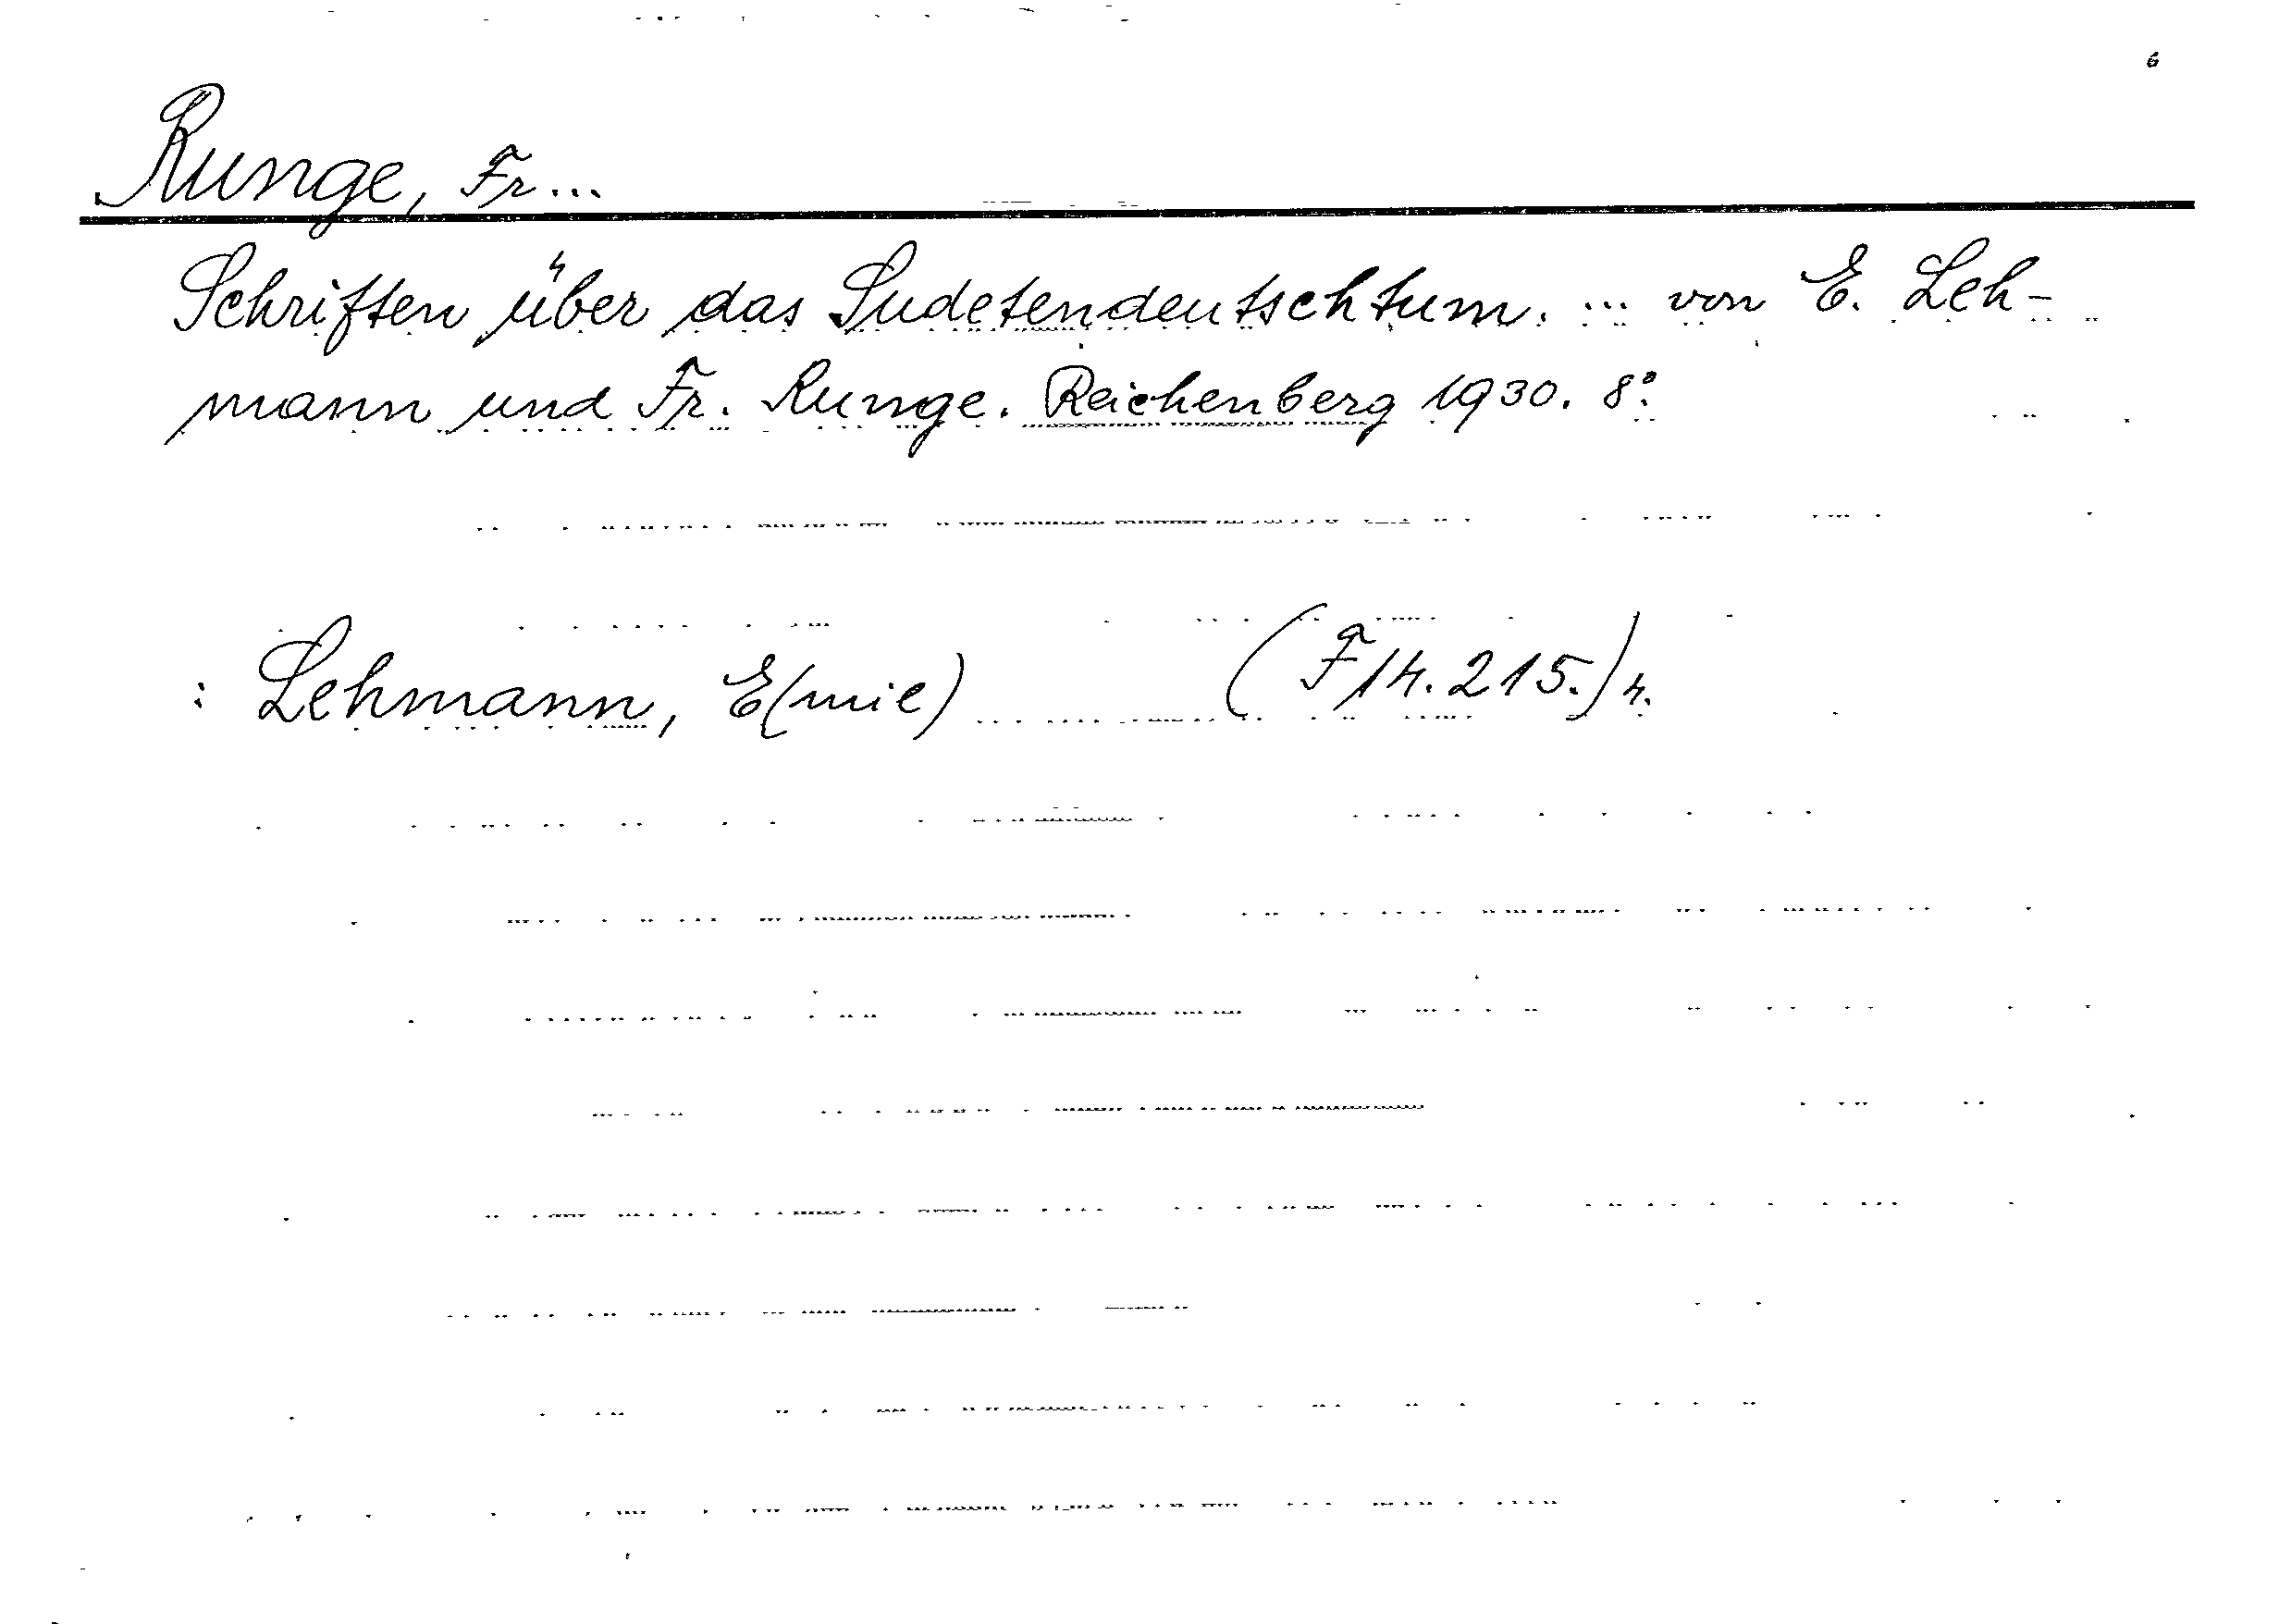 6
Runge, Fr...
Schriften über das Sudetendeutschtum. ... von E. Leh-
mann und Fr. Runge. Reichenberg 1930. 8°.
: Lehmann, E(mil) (F14.215.)4.